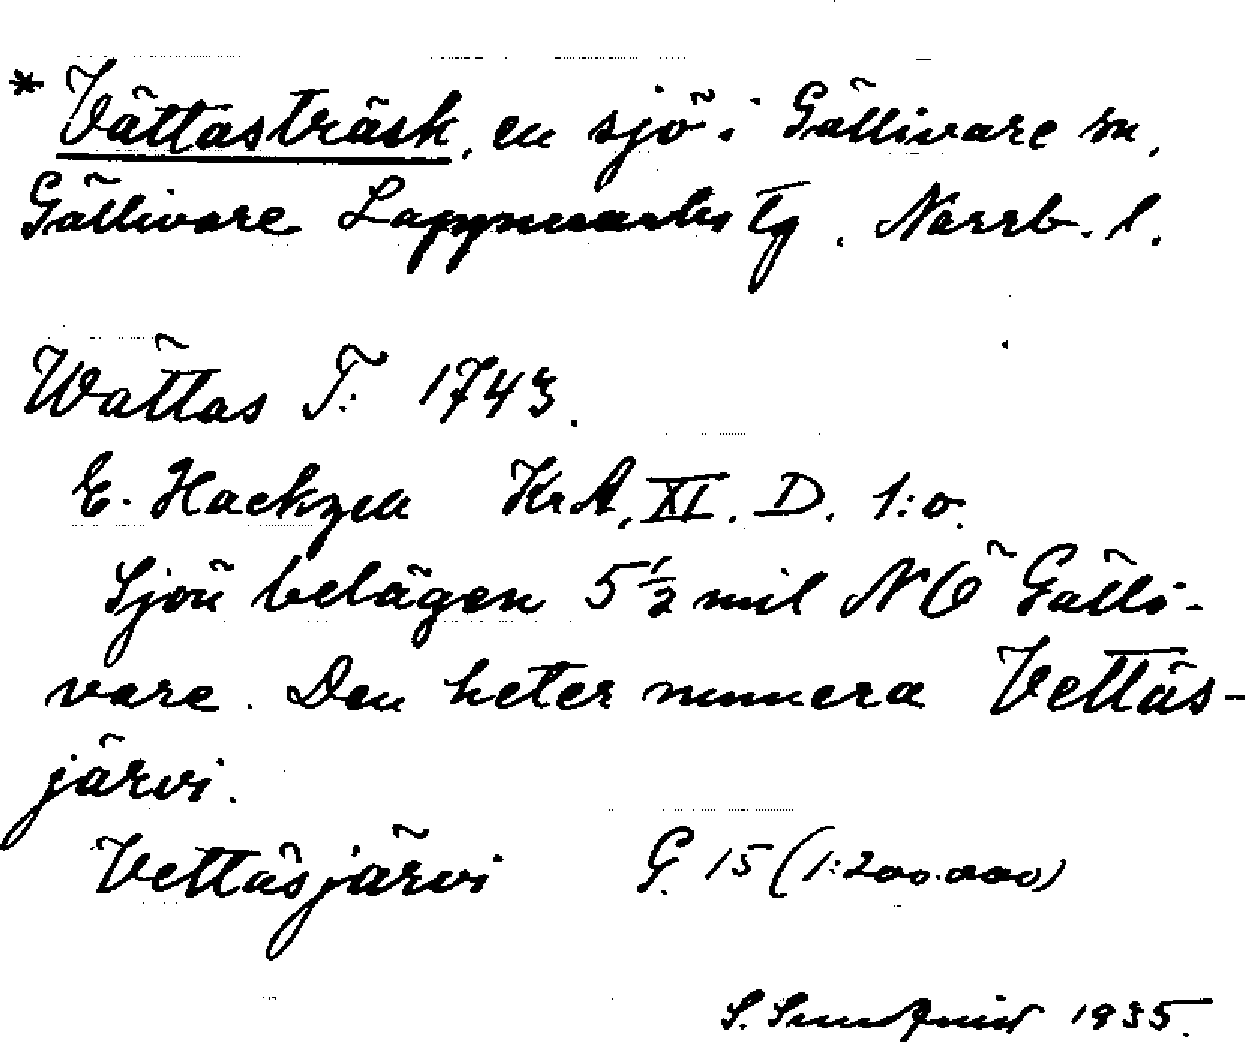 * Vättasträsk, en sjö i Gällivare sn,
Gällivare Lappmarks tg. Norrb. l.
Wättas T: 1743.
E. Hackzell KrA, XI. D. 1:o.
Sjön belägen 5 1/2 mil NÖ Gälli-
vare. Den heter numera Vettäs-
järvi.
Vettäsjärvi G. 15 (1:200.000)
S. 1935.